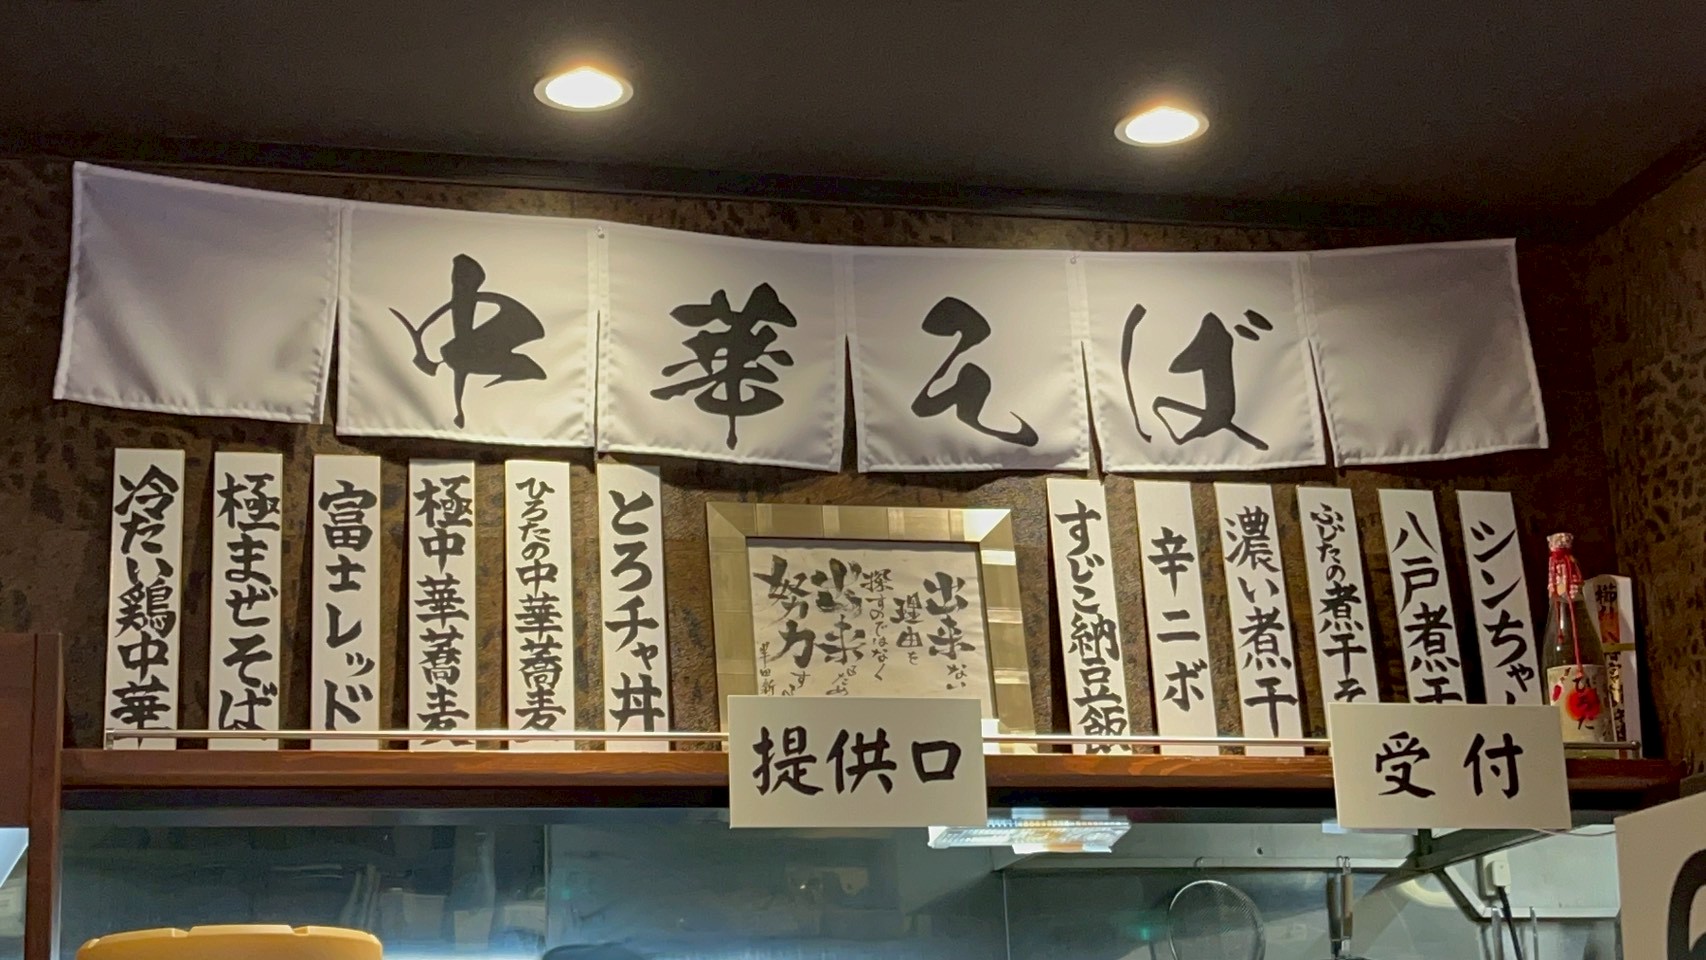 中華そば
冷たい鶏中華
極まぜそば
富士レッド
極中華蕎麦
ひろたの中華蕎麦
とろチャ丼
出来ない
理由を
探すのではなく
出来る
努力
すじこ納豆飯
辛ニボ
濃い煮干
ふじたの煮干そ
八戸煮干
シンちゃ
提供口
受付